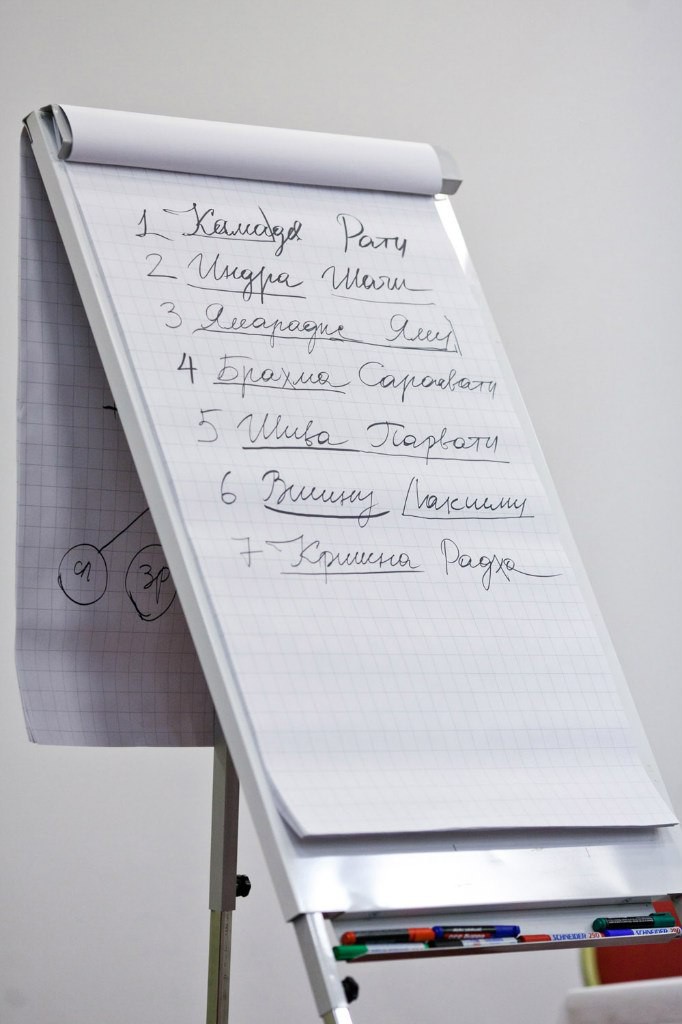 1 Камадэв Рати
2 Индра Шачи
3 Ямарадж Ями
4 Брахма Сарасвати
5 Шива Парвати
6 Вишну Лакшми
7 Кришна Радха
ЯП ЗР
SCHNEIDER 290 SCHNEIDER 290